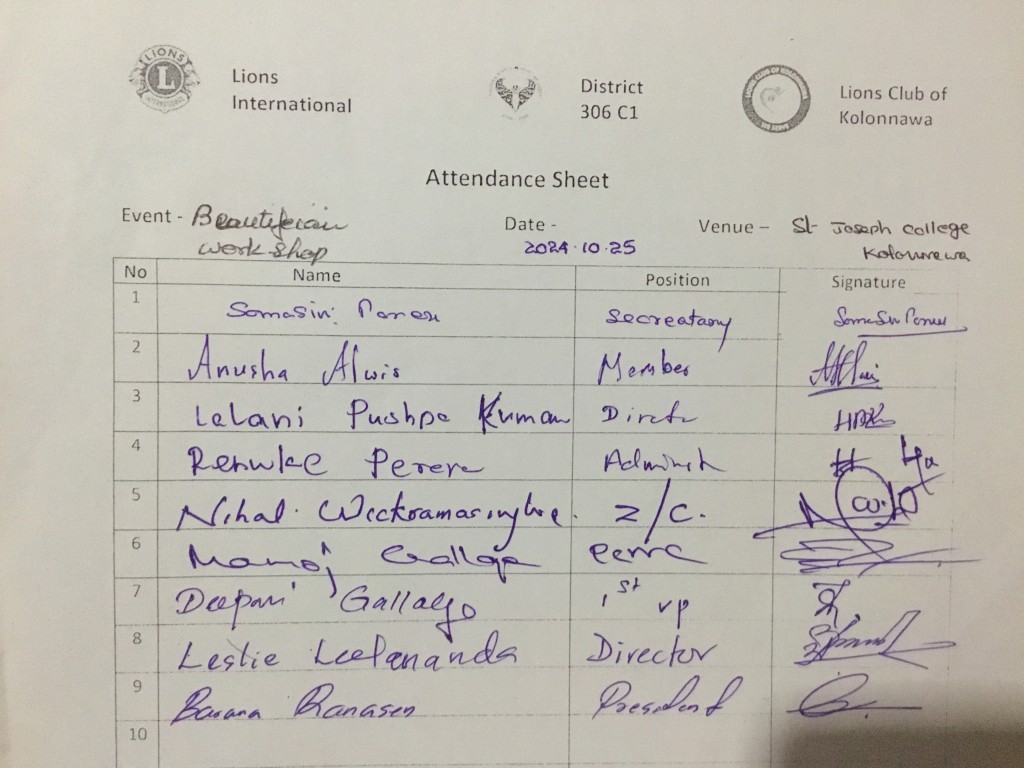 LIONS
L
INTERNATIONAL
Lions
International
District
306 C1
Lions Club of
Kolonnawa
Attendance Sheet
Event - Beautifician
work shop
Date -
2024.10.25
Venue – St Joseph college
Kolonnawa
No Name Position Signature
1 Somasiri Secreatary
2 Anusha Alwis Member
3 Lelani Pushpa Kuman
4 Renuke Perera
5 Nihal. Wickramasinghe. Z/C.
6 Manoj
7 Deepani Gallage 1st VP
8 Leslie Leelananda Director
9 President
10